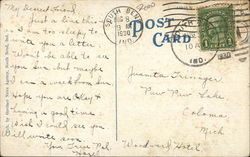 My Dearest Friend,
Just a line this
I am too sleepy to
write you a letter.
Wont be able to see
you Sun. but maybe
I am a week from Sun.
Hope you are Okey &
having a good time.
Wish I could see you
Will write soon
Your True Pal
Hazel
SOUTH BEND
AUG 8
1930
IND.
POST
CARD
10 A
IND.
Juanita
Paw Paw Lake
Coloma
Mich
Woodward Hotel